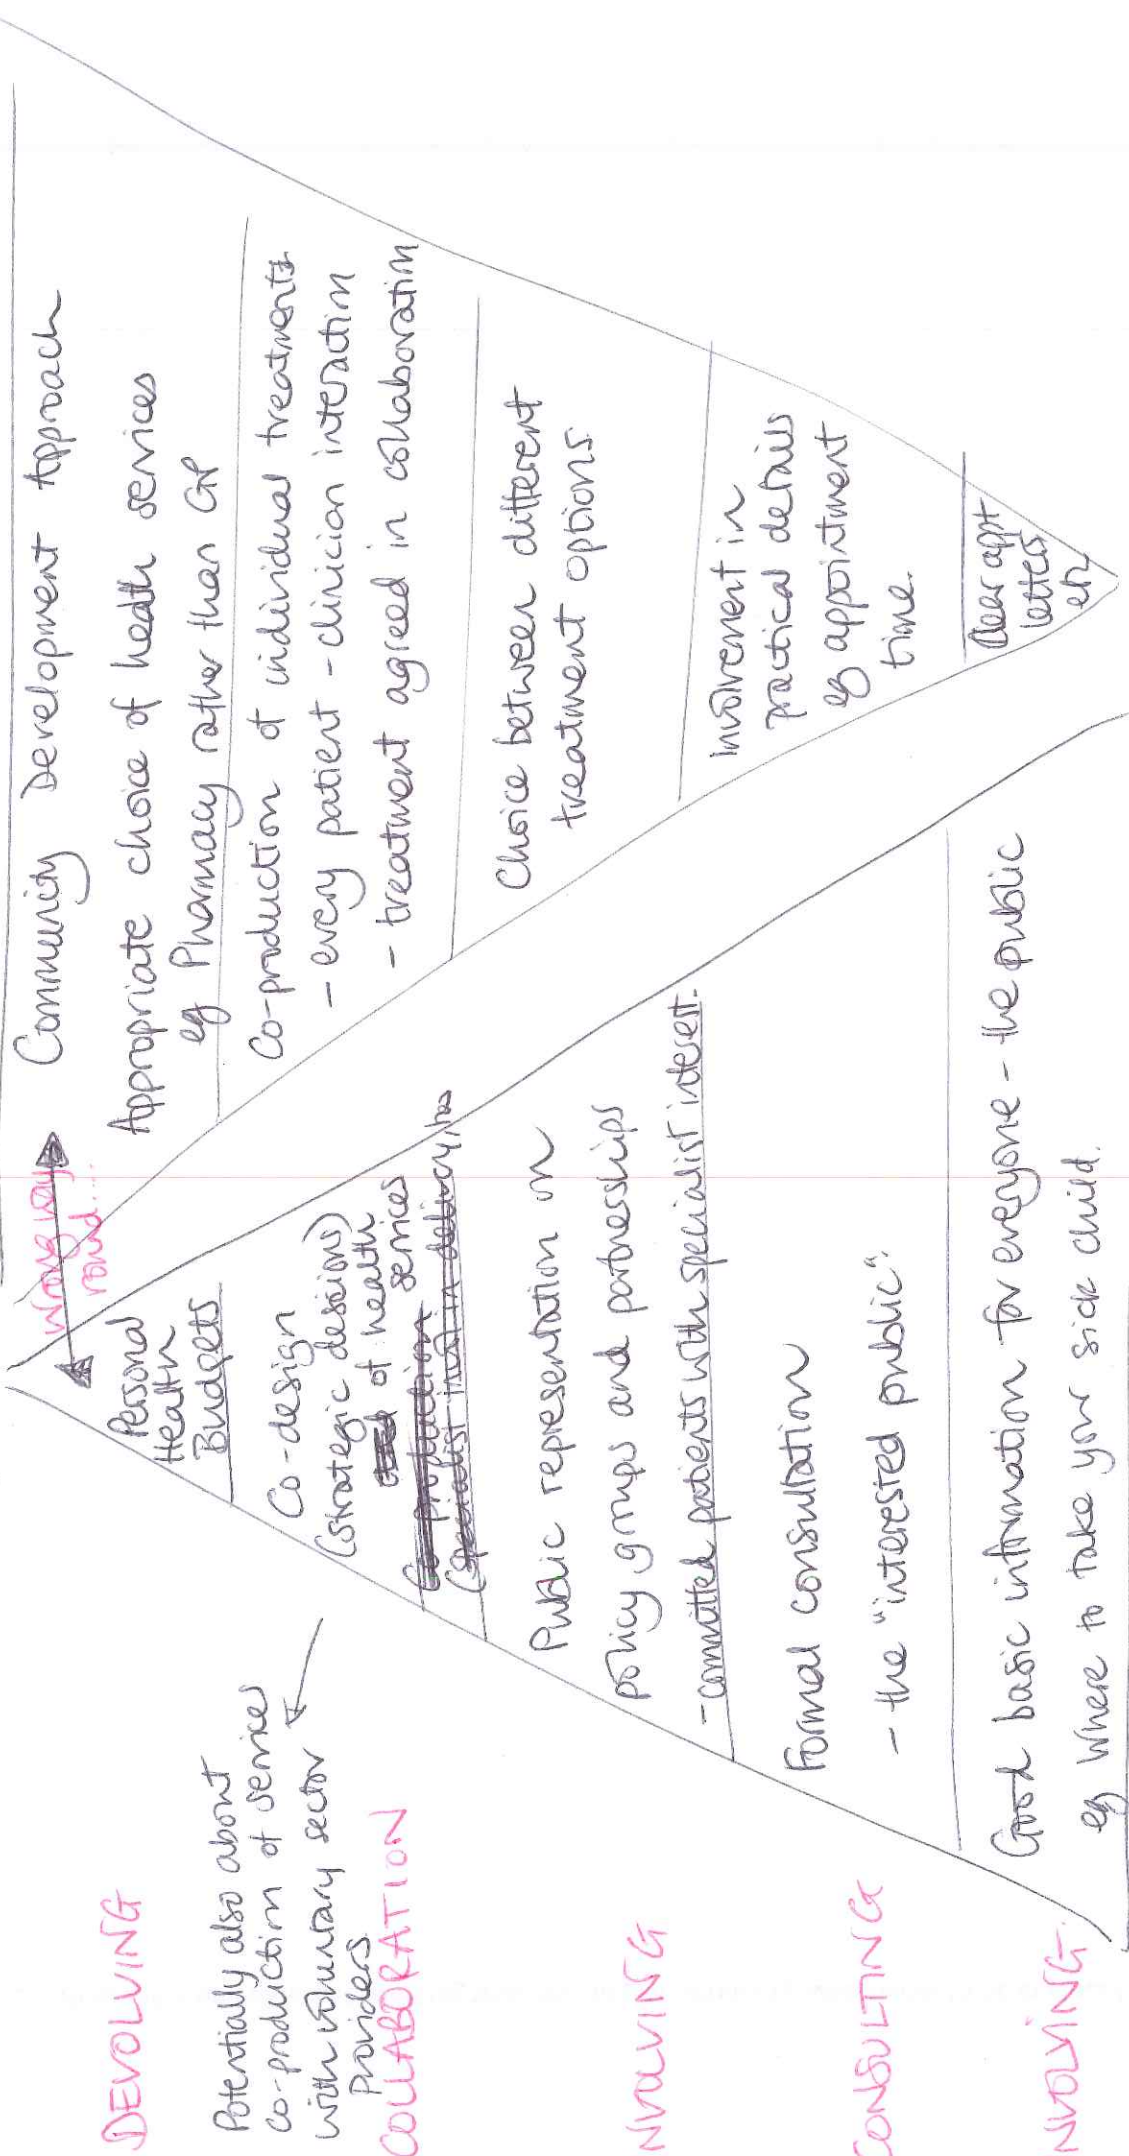 DEVOLVING
Potentially also about
co-production of services
with voluntary sector
providers.
COLLABORATION
NVOLVING
CONSULTING
NVOLVING
Wrong way
round...
Personal
Health
Budgets
Co-design
(strategic decisions)
of health
services
Co-production
(specialist input in delivery,
Public representation on
policy groups and partnerships
- committed patients with specialist interest.
Formal consultation
- the "interested public".
Good basic information for everyone - the public
eg Where to take your sick child.
Community Development Approach
Appropriate choice of health services
eg Pharmacy rather than GP
Co-production of individual treatments
- every patient - clinician interaction
- treatment agreed in collaboration
Choice between different
treatment options.
Involvement in
practical details
eg appointment
time.
Clear appt
letters
etc